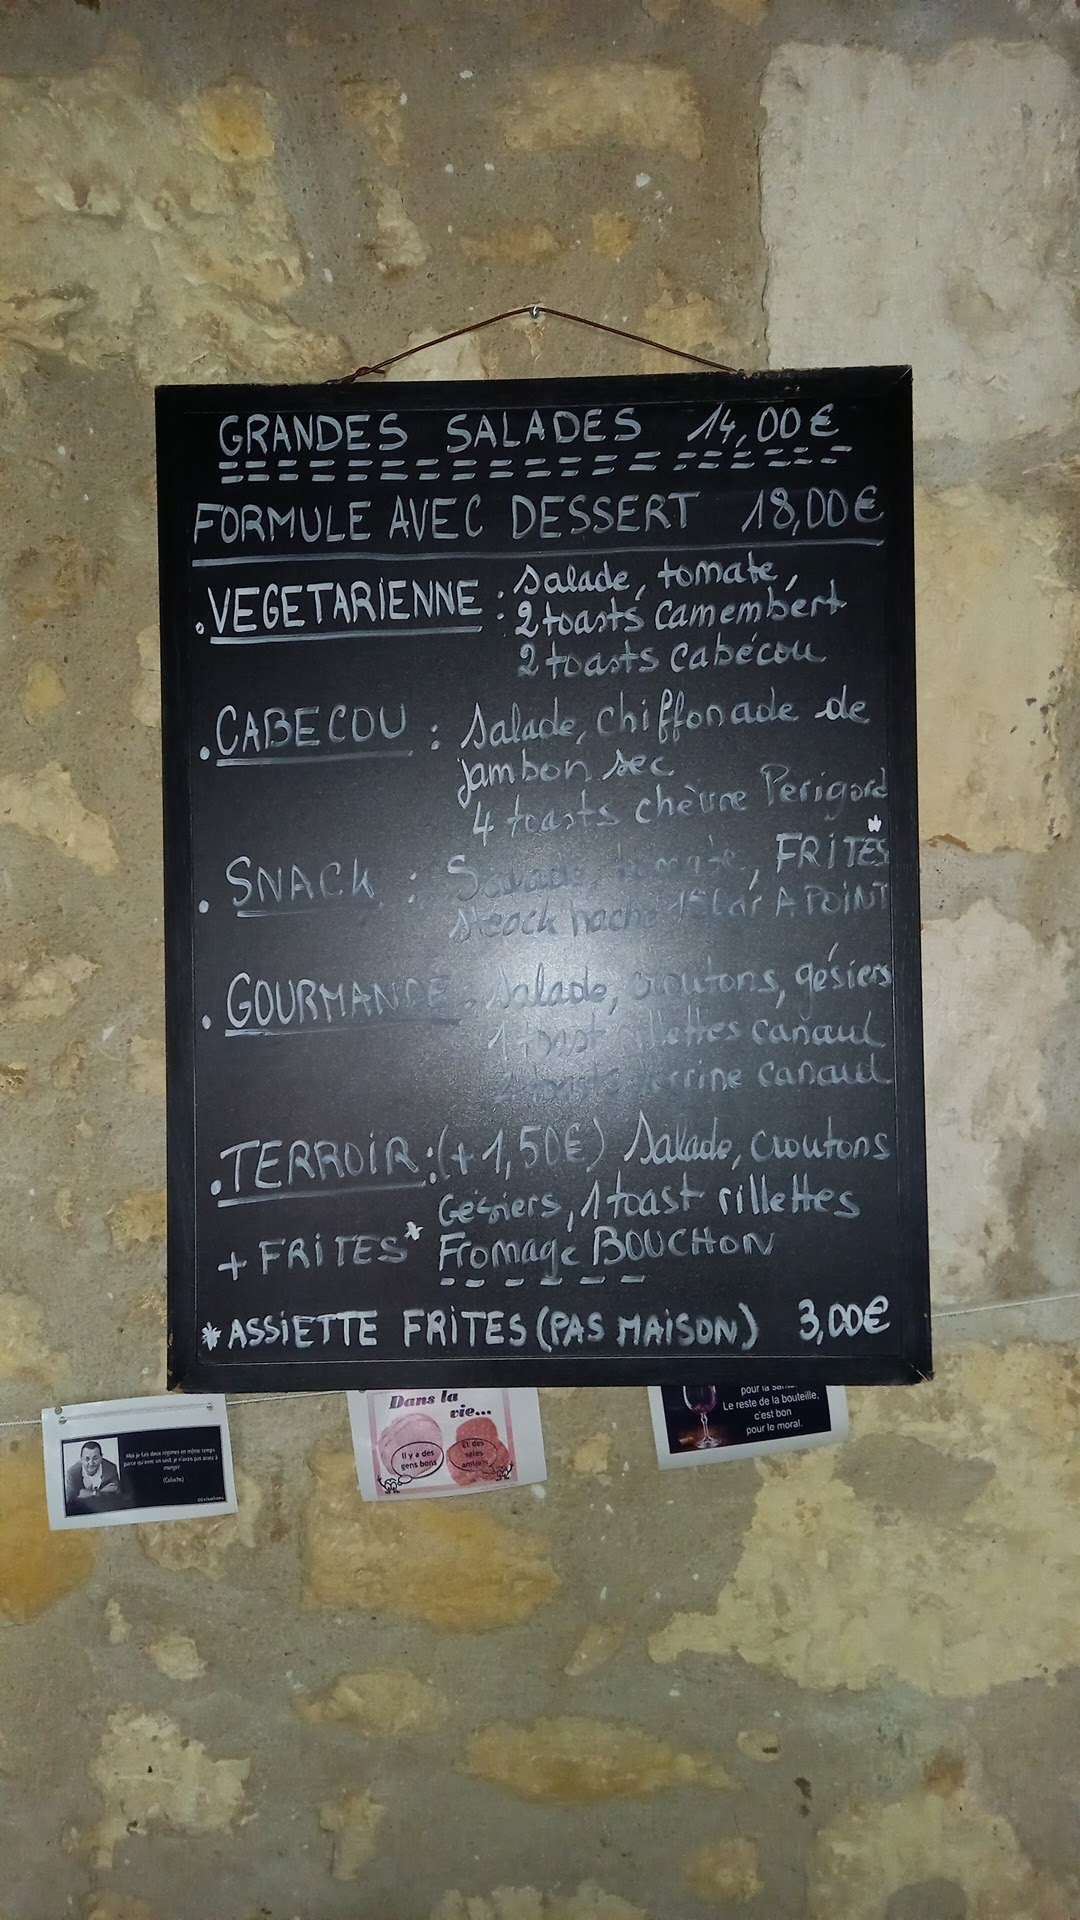 GRANDES SALADES 14,00€
FORMULE AVEC DESSERT 18,00€
.VEGETARIENNE : Salade, tomate,
2 toasts Camembert
2 toasts cabécou
.CABECOU : Salade, chiffonade de
jambon sec
4 toasts chèvre Perigord
. SNACK : Salade, tomate, FRITES*
A POINT
. GOURMANDE : Salade, croutons, gésiers
1 toast rillettes canaul
2 toasts terrine canaul
.TERROIR : (+1,50€) Salade, croutons
Gésiers, 1 toast rillettes
+ FRITES* Fromage BOUCHON
*ASSIETTE FRITES (PAS MAISON) 3,00€
Moi je fais deux régimes en même temps
parce qu'avec un seul, je n'avais pas assez à
manger
(Coluche)
Dans la
vie...
Il y a des
gens bons
Et des
sales
ami(e)s
pour la santé
Le reste de la bouteille,
c'est bon
pour le moral.